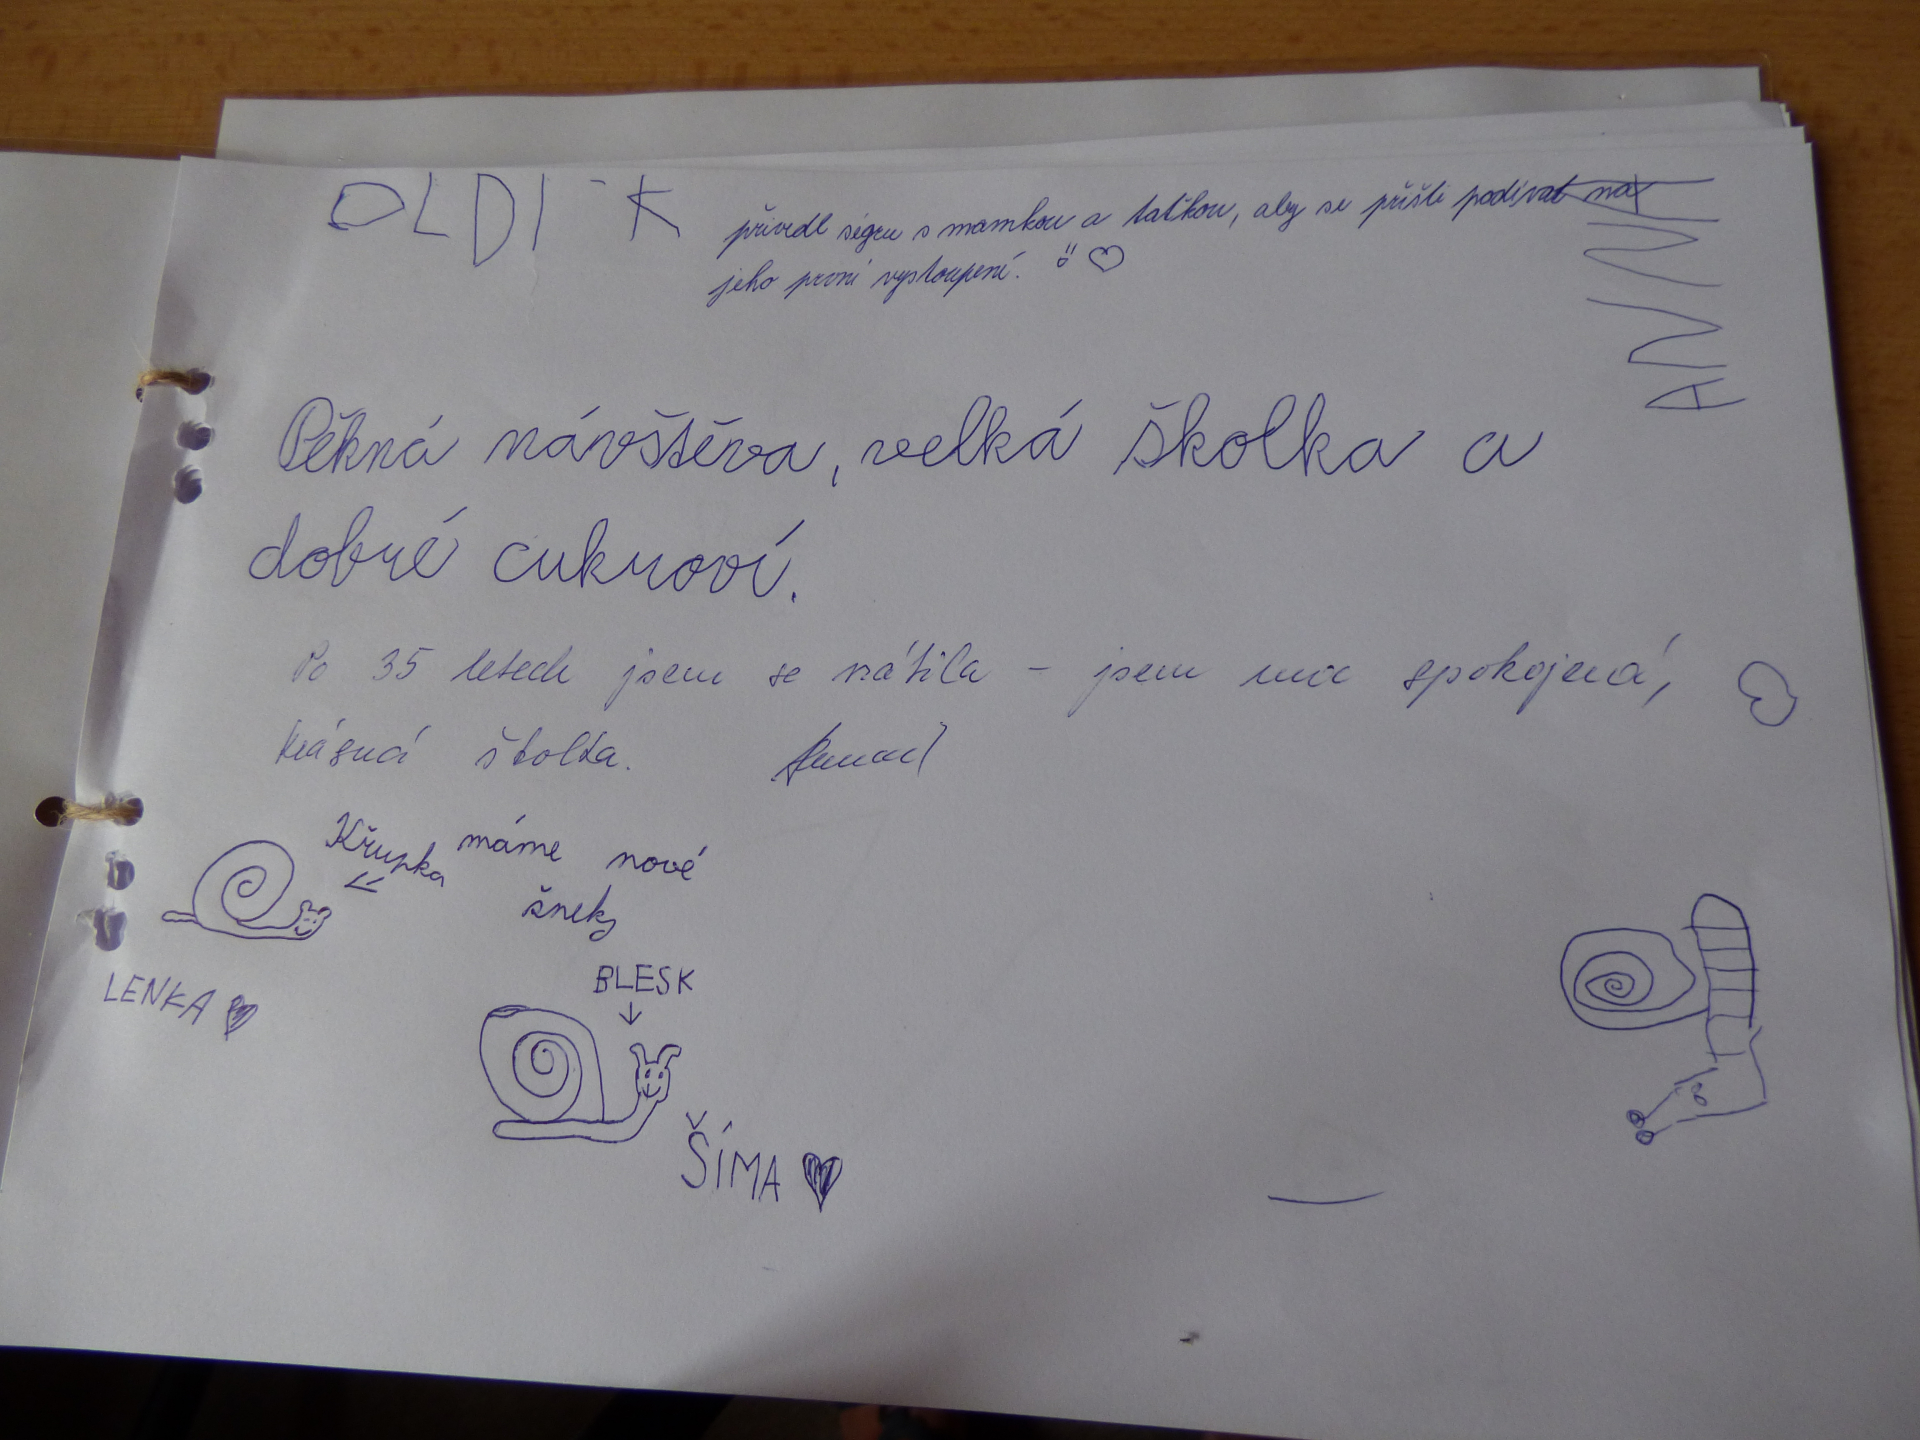 OLDI K
přivedl ségru s mamkou a taťkou, aby se přišli podívat na
jeho první vystoupení.
Pěkná návštěva, velká školka a
dobré cukroví.
Po 35 letech jsem se vrátila – jsem moc spokojená,
krásná školka.
Křupka
máme nové
šneky
LENKA
BLESK
ŠÍMA